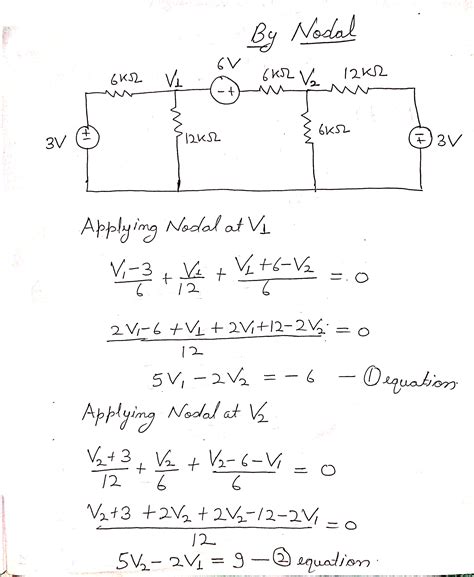 By Nodal
6V
6KΩ V1 - + 6KΩ V2 12KΩ
3V ± 12KΩ 6KΩ ∓ 3V
Applying Nodal at V1
V1-3/6 + V1/12 + V1+6-V2/6 = 0
2V1-6+V1+2V1+12-2V2/12 = 0
5V1-2V2 = -6 — ① equation
Applying Nodal at V2
V2+3/12 + V2/6 + V2-6-V1/6 = 0
V2+3+2V2+2V2-12-2V1/12 = 0
5V2-2V1 = 9 — ② equation.